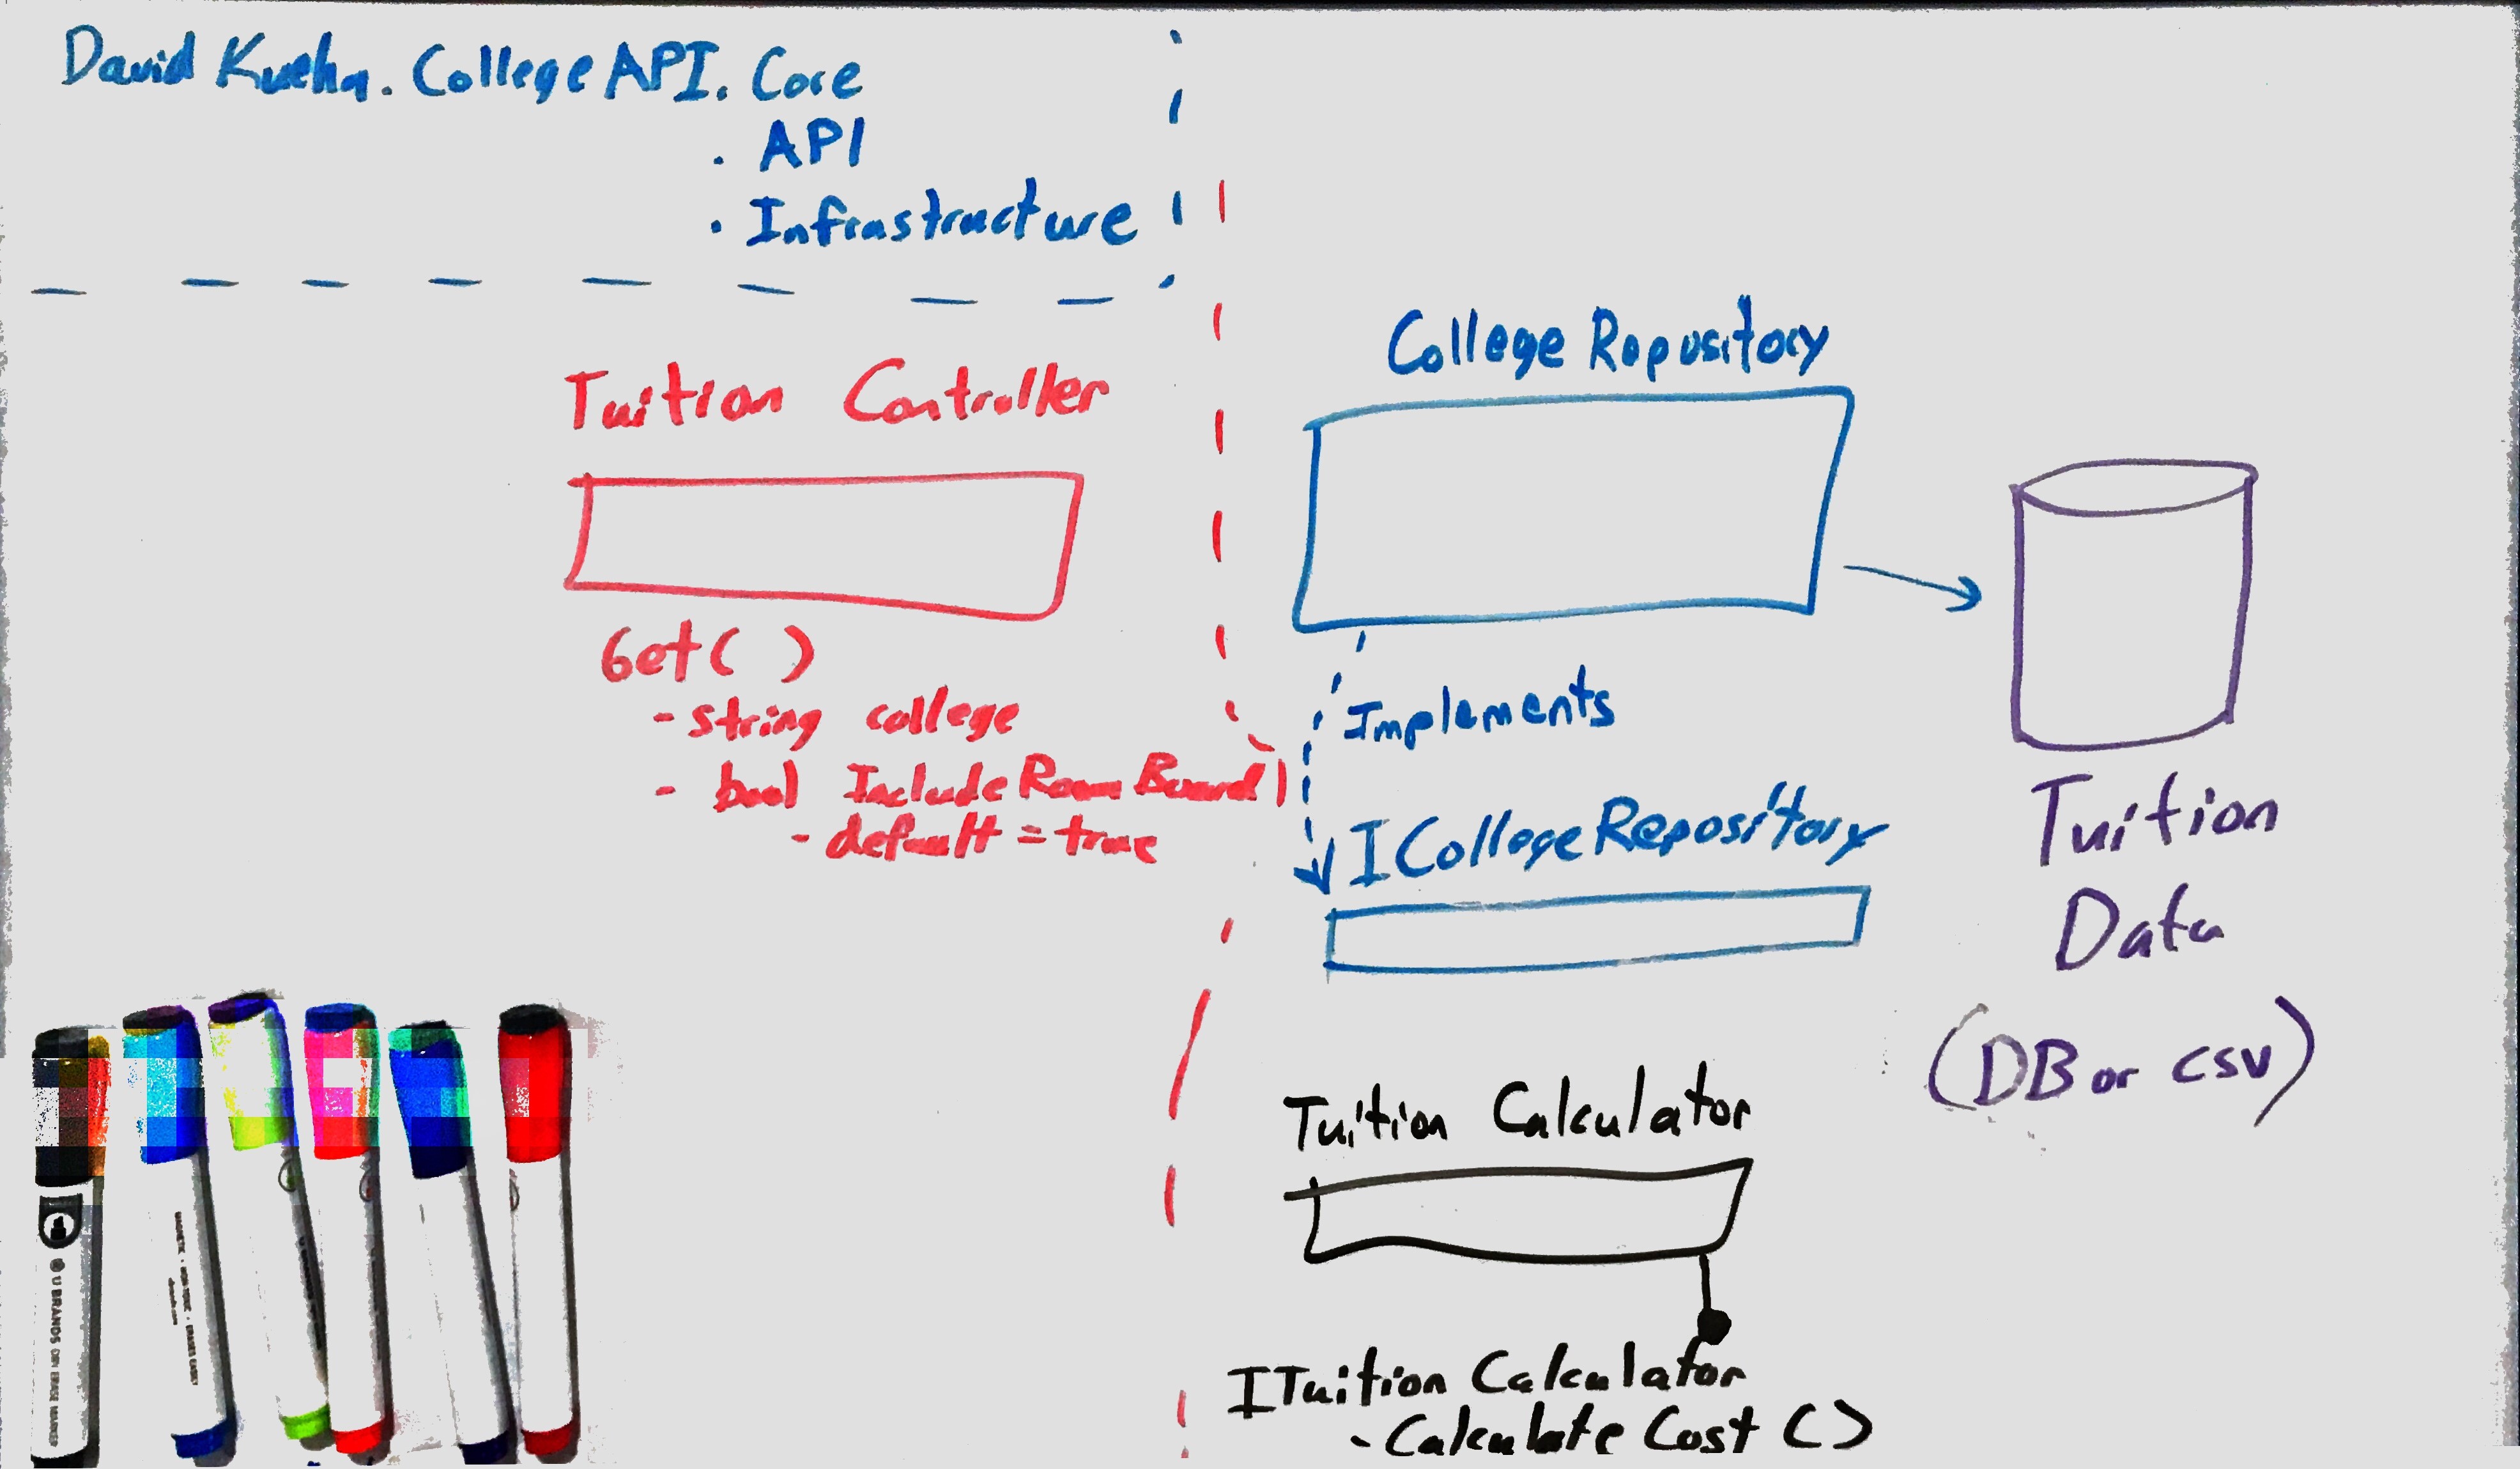 David Kuehn. College API. Core
. API
. Infrastructure
College Repository
Tuition Controller
Get( )
- string college
- bool Include Room Board
- default = true
Implements
I College Repository
Tuition
Data
(DB or CSV)
Tuition Calculator
ITuition Calculator
- Calculate Cost ()
U BRANDS